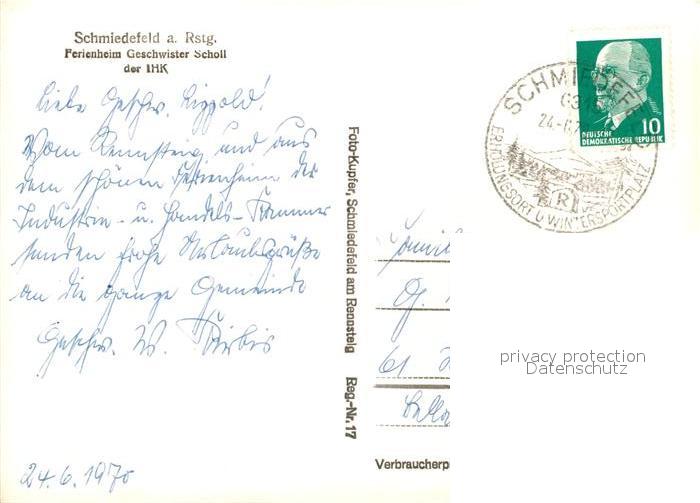 Schmiedefeld a. Rstg.
Ferienheim Geschwister Scholl
der IHK
Liebe Geschw. Lippold!
Vom Rennsteig und aus
dem schönen Ferienheim der
Industrie- u. Handels-Kammer
senden frohe Urlaubsgrüße
an die ganze Gemeinde
Geschw. W. Kürbis
24.6.1970
Foto-Kupfer, Schmiedefeld am Rennsteig Reg.-Nr. 17
SCHMIEDEFE
ERHOLUNGSORT U WINTERSPORTPLATZ
R
10
DEUTSCHE
DEMOKRATISCHE REPUBLIK
61
privacy protection
Datenschutz
Verbraucherp